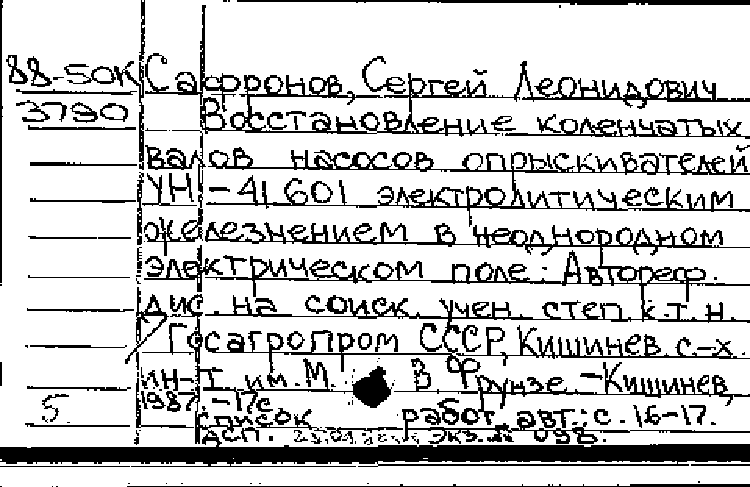 88-50К Сафронов, Сергей Леонидович
3790 Восстановление коленчатых
валов насосов опрыскивателей
УН-41.601 электролитическим
железнением в неоднородном
электрическом поле: Автореф.
дис. на соиск. учен. степ. к.т.н.
/ Госагропром СССР, Кишинев. с.-х.
ин-т им. М. В. Фрунзе. -Кишинев,
1987. -17с
5 список работ авт.: с. 16-17.
экз. № 098.